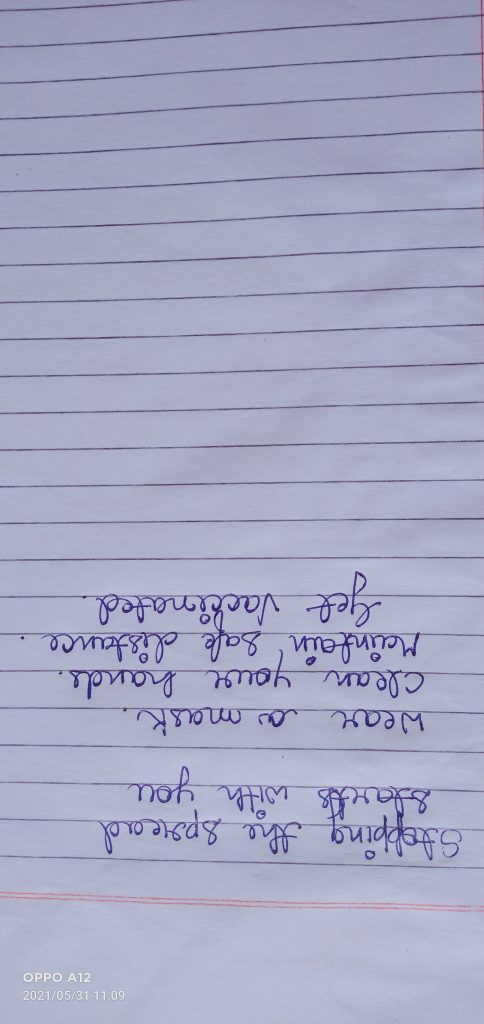 Stopping the spread
starts with you
Wear a mask.
Clean your hands.
Maintain safe distance.
Get Vaccinated.
OPPO A12
2021/05/31 11:09